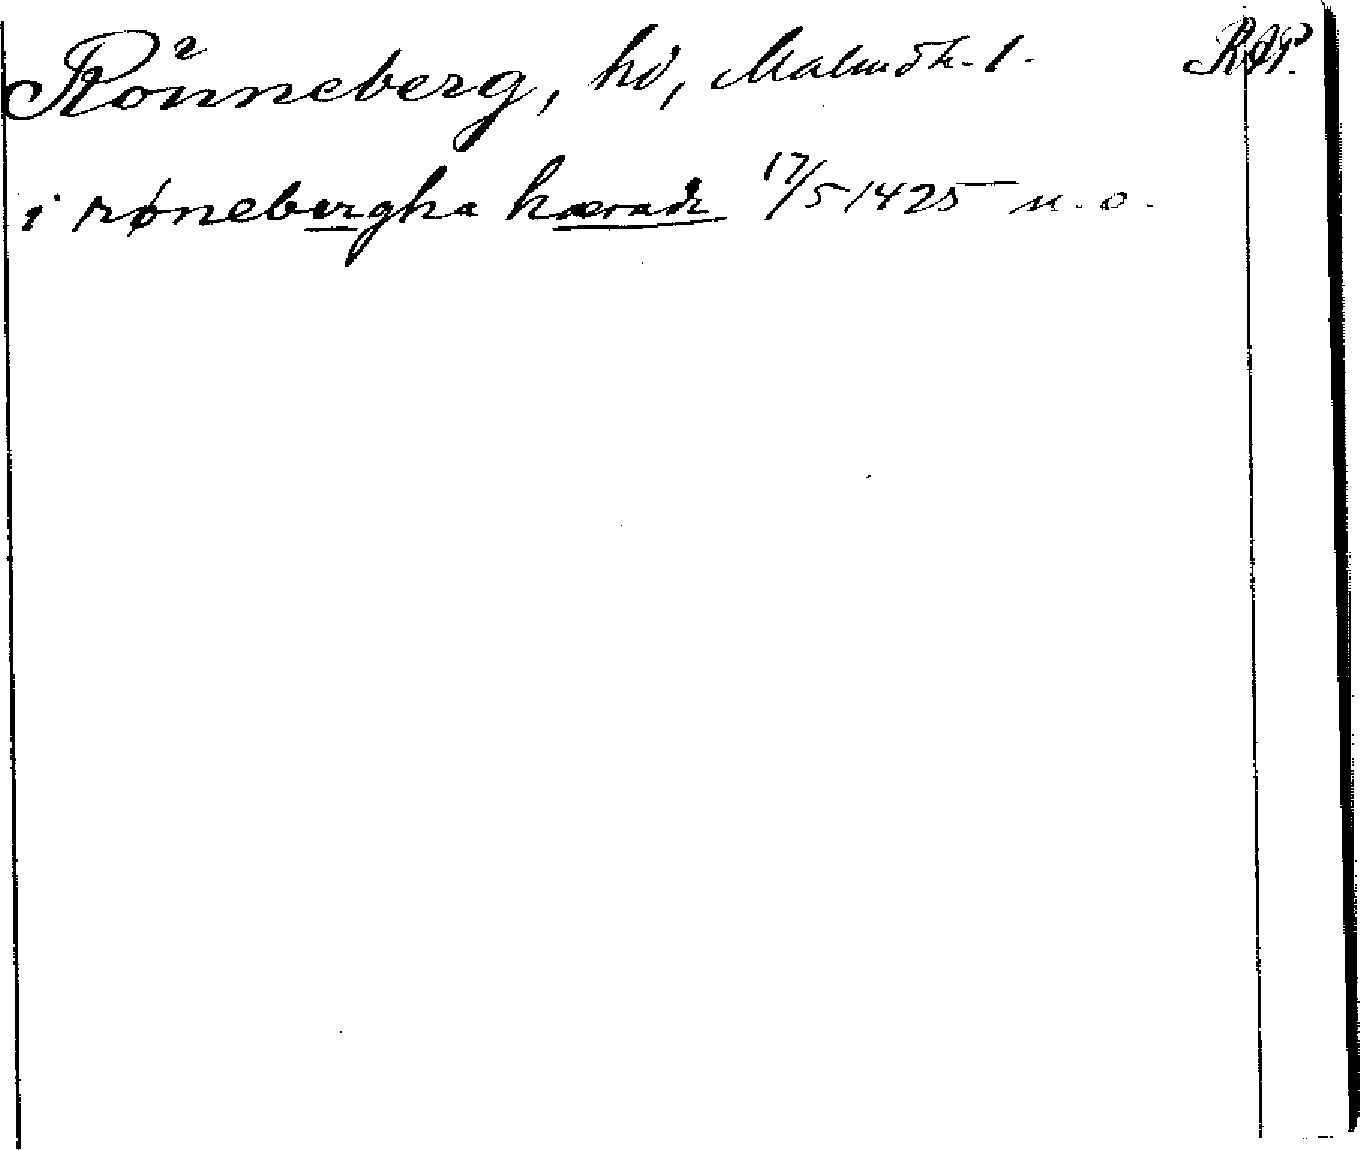 Rönneberg, hd, Malmöh. l. RAP.
i rønebergha hæradh 17/5 1425 n. o.